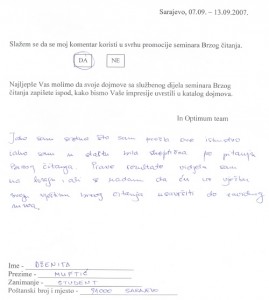 Sarajevo, 07.09. – 13.09.2007.
Slažem se da se moj komentar koristi u svrhu promocije seminara Brzog čitanja.
DA NE
Najljepše Vas molimo da svoje dojmove sa službenog dijela seminara Brzog
čitanja zapišete ispod, kako bismo Vaše impresije uvrstili u katalog dojmova.
In Optimum team
Jako sam sretna što sam prošla ovo iskustvo
iako sam u startu bila skeptična po pitanju
Brzog čitanja. Prave rezultate vidjela sam
na kraju i ali se nadam da ću uz vježbu
svoj vještinu brzog čitanja usavršiti do
nivoa.
Ime - DŽENITA
Prezime - MUFTIĆ
Zanimanje - STUDENT
Poštanski broj i mjesto - 71000 SARAJEVO